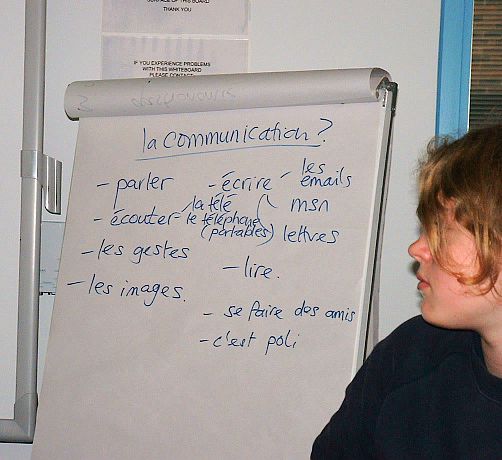 SURFACE OF THIS BOARD
THANK YOU
IF YOU EXPERIENCE PROBLEMS
WITH THIS WHITEBOARD
PLEASE CONTACT
la communication?
- parler
- écouter - la télé
le téléphone
(portables)
- les gestes
- les images.
- écrire - les emails
msn
lettres
- lire.
- se faire des amis
- c'est poli